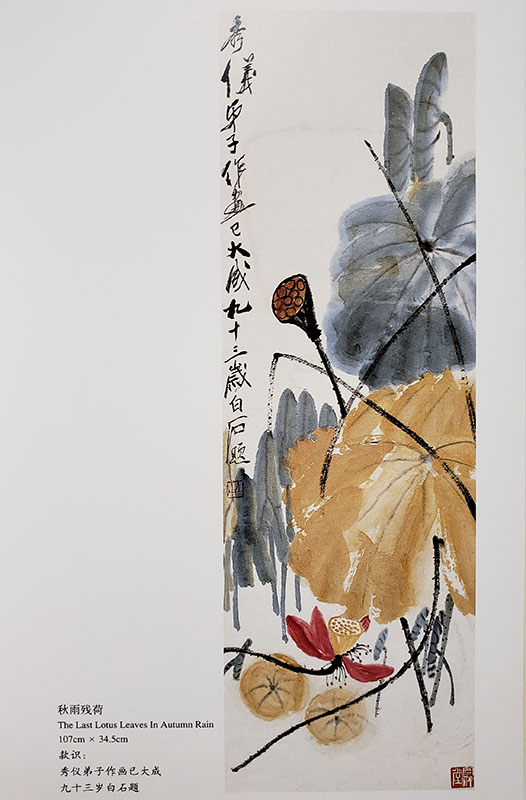 秀儀弟子作畫已大成九十三歲白石題
秋雨残荷
The Last Lotus Leaves In Autumn Rain
107cm × 34.5cm
款识：
秀仪弟子作画已大成
九十三岁白石题